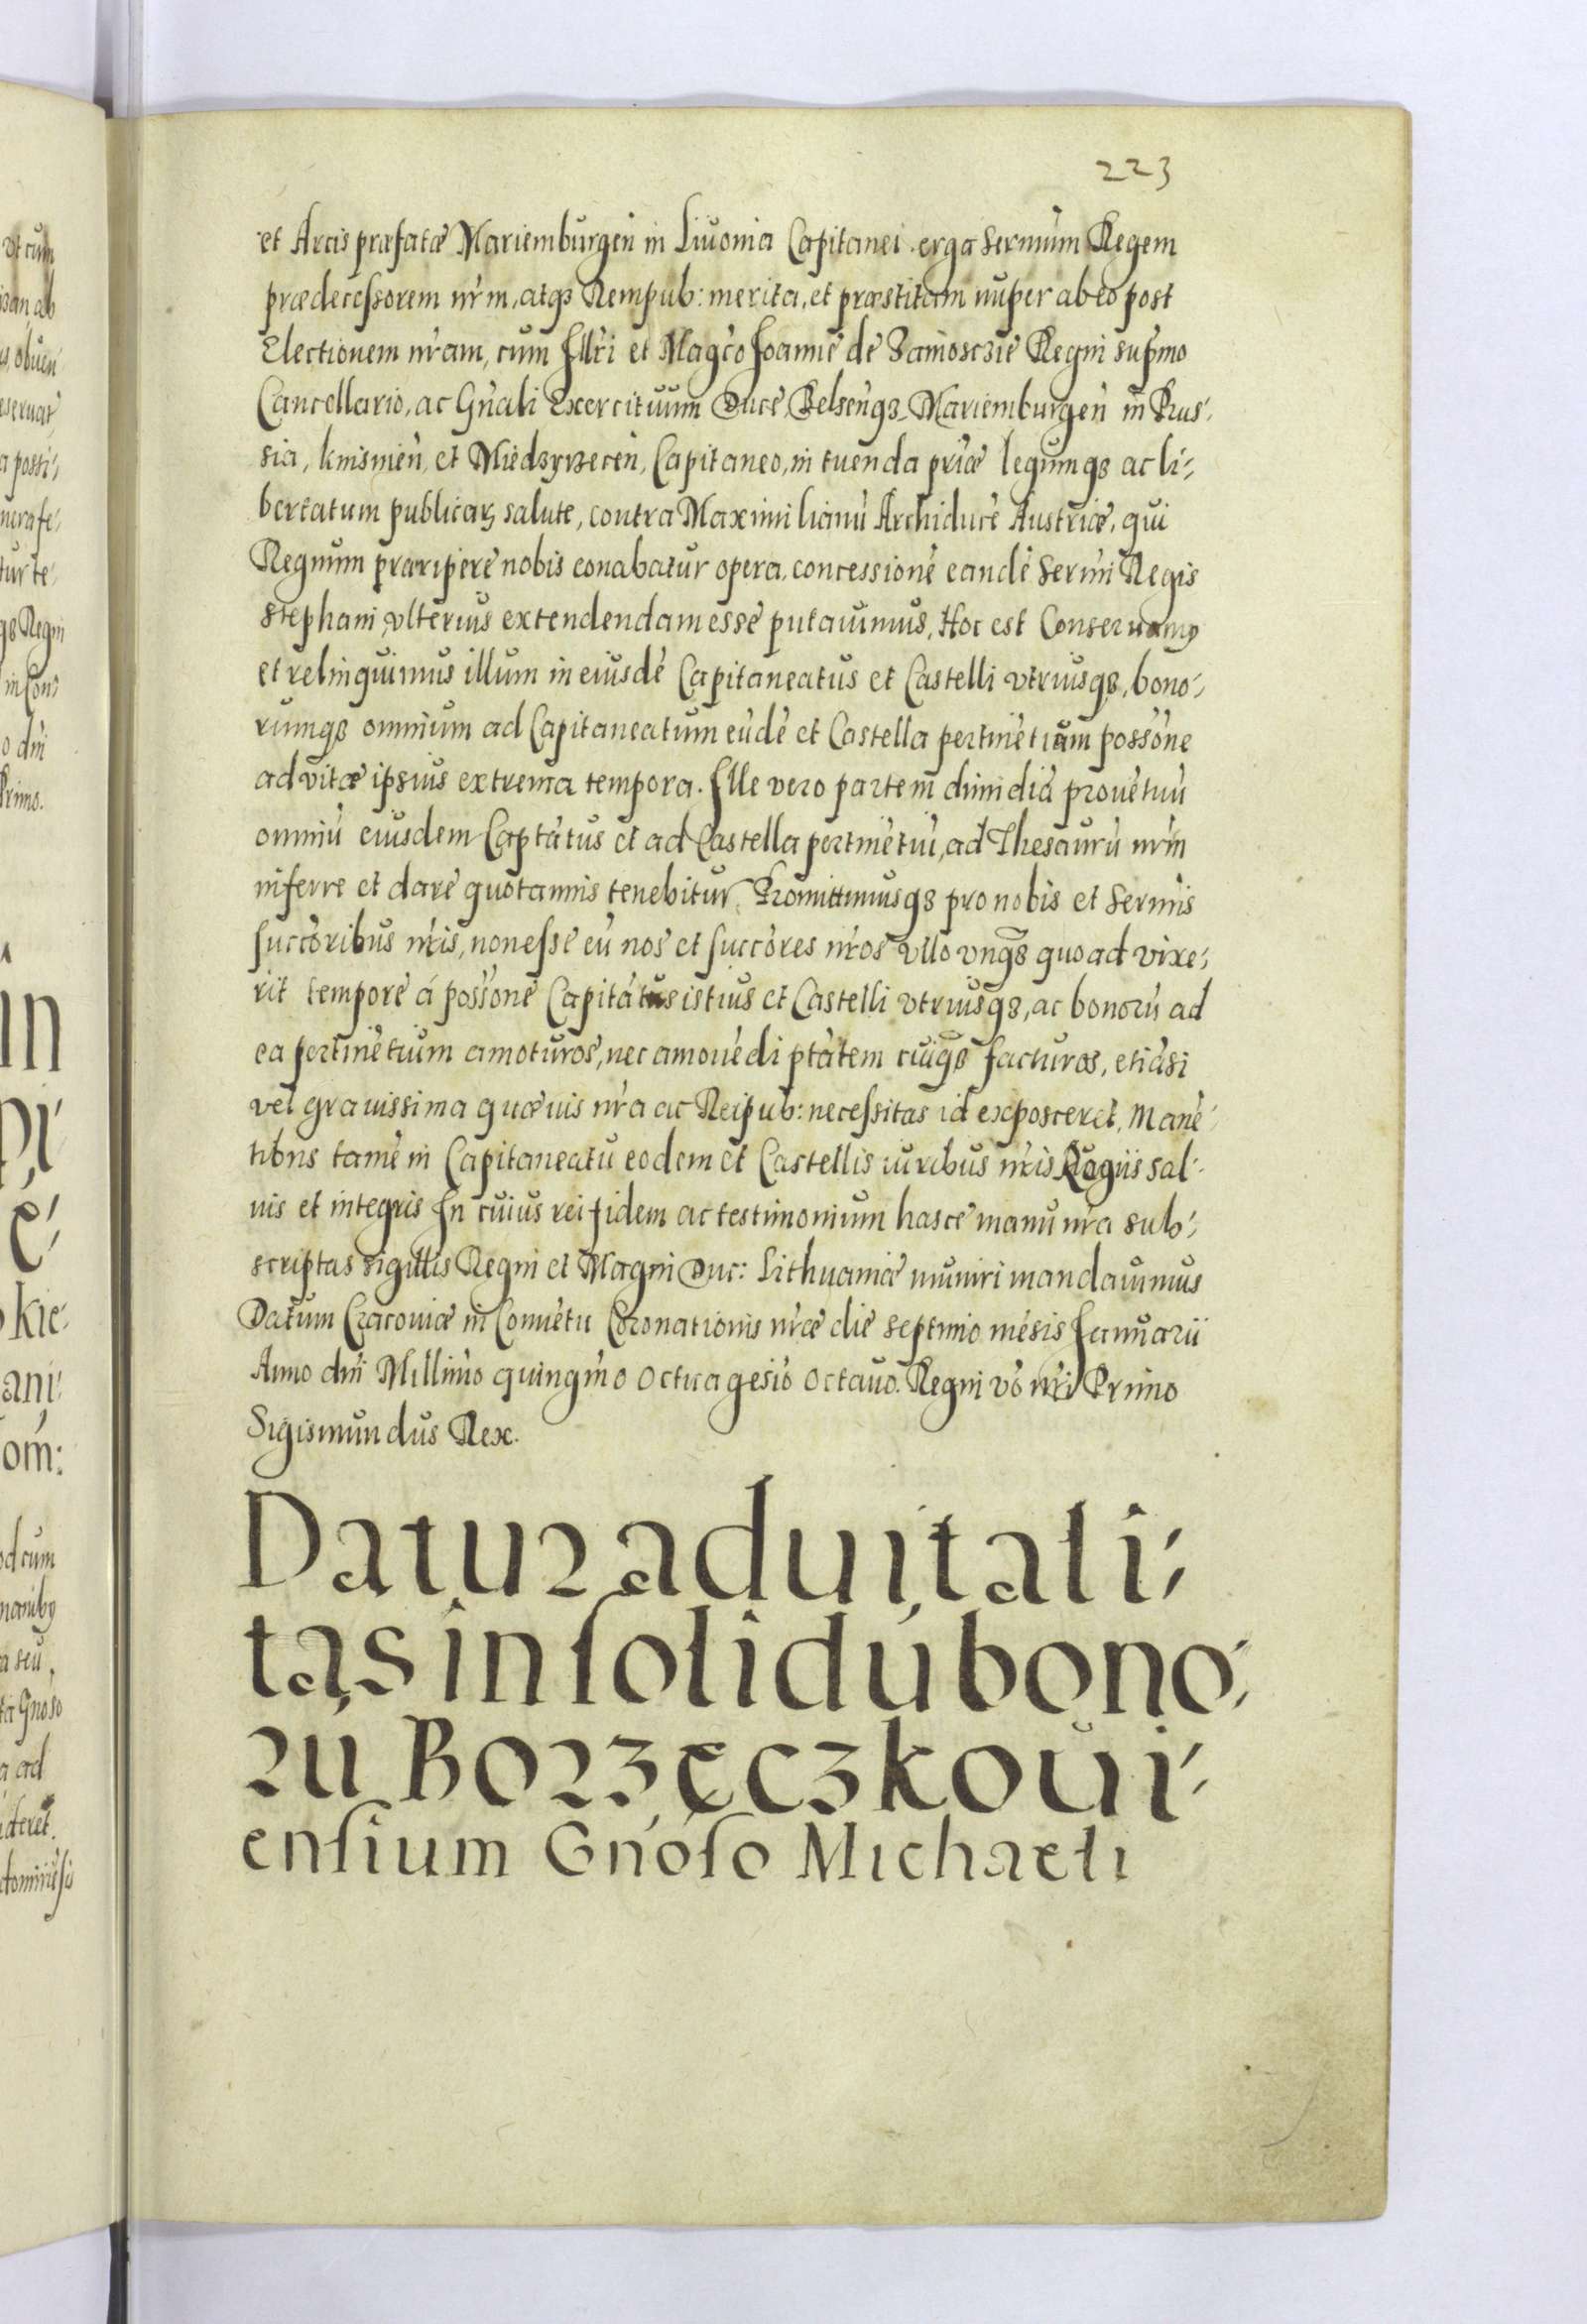 223
et Arcis præfatæ Mariemburgeñ in Livonia Capitanei erga Sermum Regem
prædecessorem nrm, atqз Rempub: merita, et præstitam nuper ab eo post
Electionem nram, cum Illri et Magco Joanne de Zamosczie Regni supmo
Cancellario, ac Gnali Exercituum Duce, Belsenqз Mariemburgeñ in Prus-
sia, knisnieñ, et Miedzyrzeceñ, Capitaneo, in tuenda priæ legumqз ac li-
bertatum publicaꝝ salute, contra Maximilianu Archiduce Austriæ, qui
Regnum præripere nobis conabatur opera, concessione eande Sermi Regis
Stephani ulterius extendendam esse putavimus, Hoc est Conservamꝰ
et relinquimus illum in eiusde Capitaneatus et Castelli vtriusqз, bono-
rumqз omnium ad Capitaneatum eude et Castella pertinetium possone
ad vitæ ipsius extrema tempora. Ille vero partem dimidia provetuu
omniu eiusdem Captatus et ad Castella pertinetiu, ad Thesauru nrm
inferre et dare quotannis tenebitur. Promittimusqз pro nobis et Sermis
succoribus nris, non esse eu nos et succores nros vllo vnqз quoad vixe-
rit tempore á possone Capitatus istius et Castelli vtriusqз, ac bonoru ad
ea pertinetium amoturos, nec amovedi ptatem cuiqз facturos, etiasi
vel gravissima quævis nra ac Reipub: necessitas id exposceret, Mane-
tibus tame in Capitaneatu eodem et Castellis iuribus nris Regiis sal-
vis et integris In cuius rei fidem ac testimonium hasce manu nra sub-
scriptas sigillis Regni et Magni Duc: Lithuaniæ muniri mandavimus
Datum Cracoviæ in Conuetu Coronationis nræ die septimo mesis Januarii
Anno dni Millimo quingmo octuagesio octavo. Regni vo nri Primo
Sigismundus Rex.
Datur aduitali-
tas in solidú bono-
rú Borzęczkoui-
ensium Gnóso Michaeli